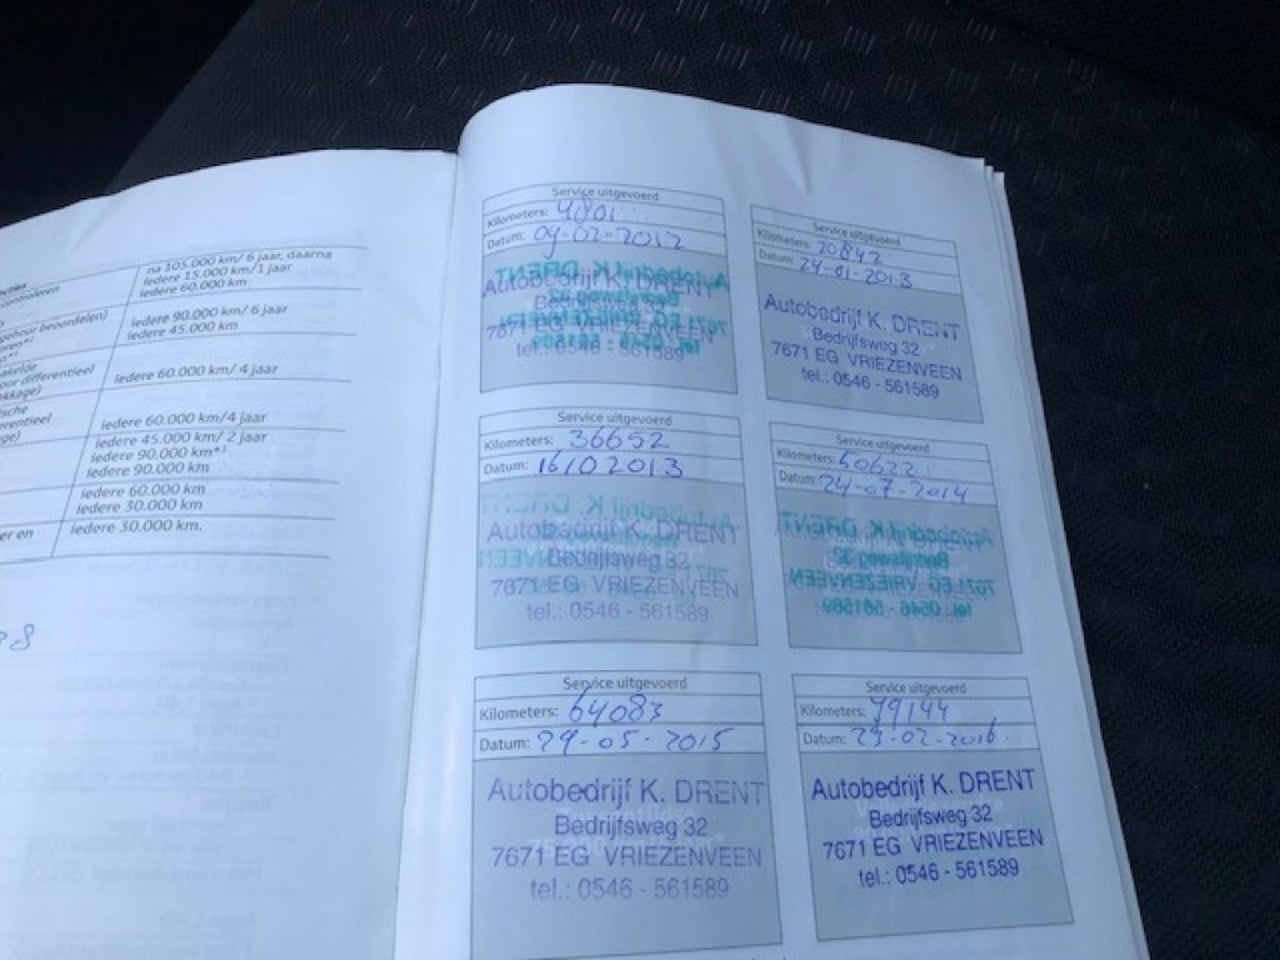 na 105.000 km/ 6 jaar, daarna
iedere 15.000 km/1 jaar
controleren
iedere 60.000 km
iedere 90.000 km/ 6 jaar
gehoor beoordelen)
iedere 45.000 km
iedere 60.000 km/ 4 jaar
iedere 60.000 km/4 jaar
iedere 45.000 km/ 2 jaar
iedere 90.000 km*³
iedere 90.000 km
iedere 60.000 km
iedere 30.000 km
er en
iedere 30.000 km.
Service uitgevoerd
Kilometers: 9801
Datum: 09-02-2012
Autobedrijf K. DRENT
Bedrijfsweg 32
7671 EG VRIEZENVEEN
tel.: 0546 - 561589
Service uitgevoerd
Kilometers: 20842
Datum: 24-01-2013
Autobedrijf K. DRENT
Bedrijfsweg 32
7671 EG VRIEZENVEEN
tel.: 0546 - 561589
Service uitgevoerd
Kilometers: 36652
Datum: 16/10 2013
Autobedrijf K. DRENT
Bedrijfsweg 32
7671 EG VRIEZENVEEN
tel.: 0546 - 561589
Service uitgevoerd
Kilometers: 50622
Datum: 24-07-2014
Autobedrijf K. DRENT
Bedrijfsweg 32
7671 EG VRIEZENVEEN
tel. 0546 - 561589
Service uitgevoerd
Kilometers: 64083
Datum: 29-05-2015
Autobedrijf K. DRENT
Bedrijfsweg 32
7671 EG VRIEZENVEEN
tel.: 0546 - 561589
Service uitgevoerd
Kilometers: 79144
Datum: 23-02-2016
Autobedrijf K. DRENT
Bedrijfsweg 32
7671 EG VRIEZENVEEN
tel.: 0546 - 561589